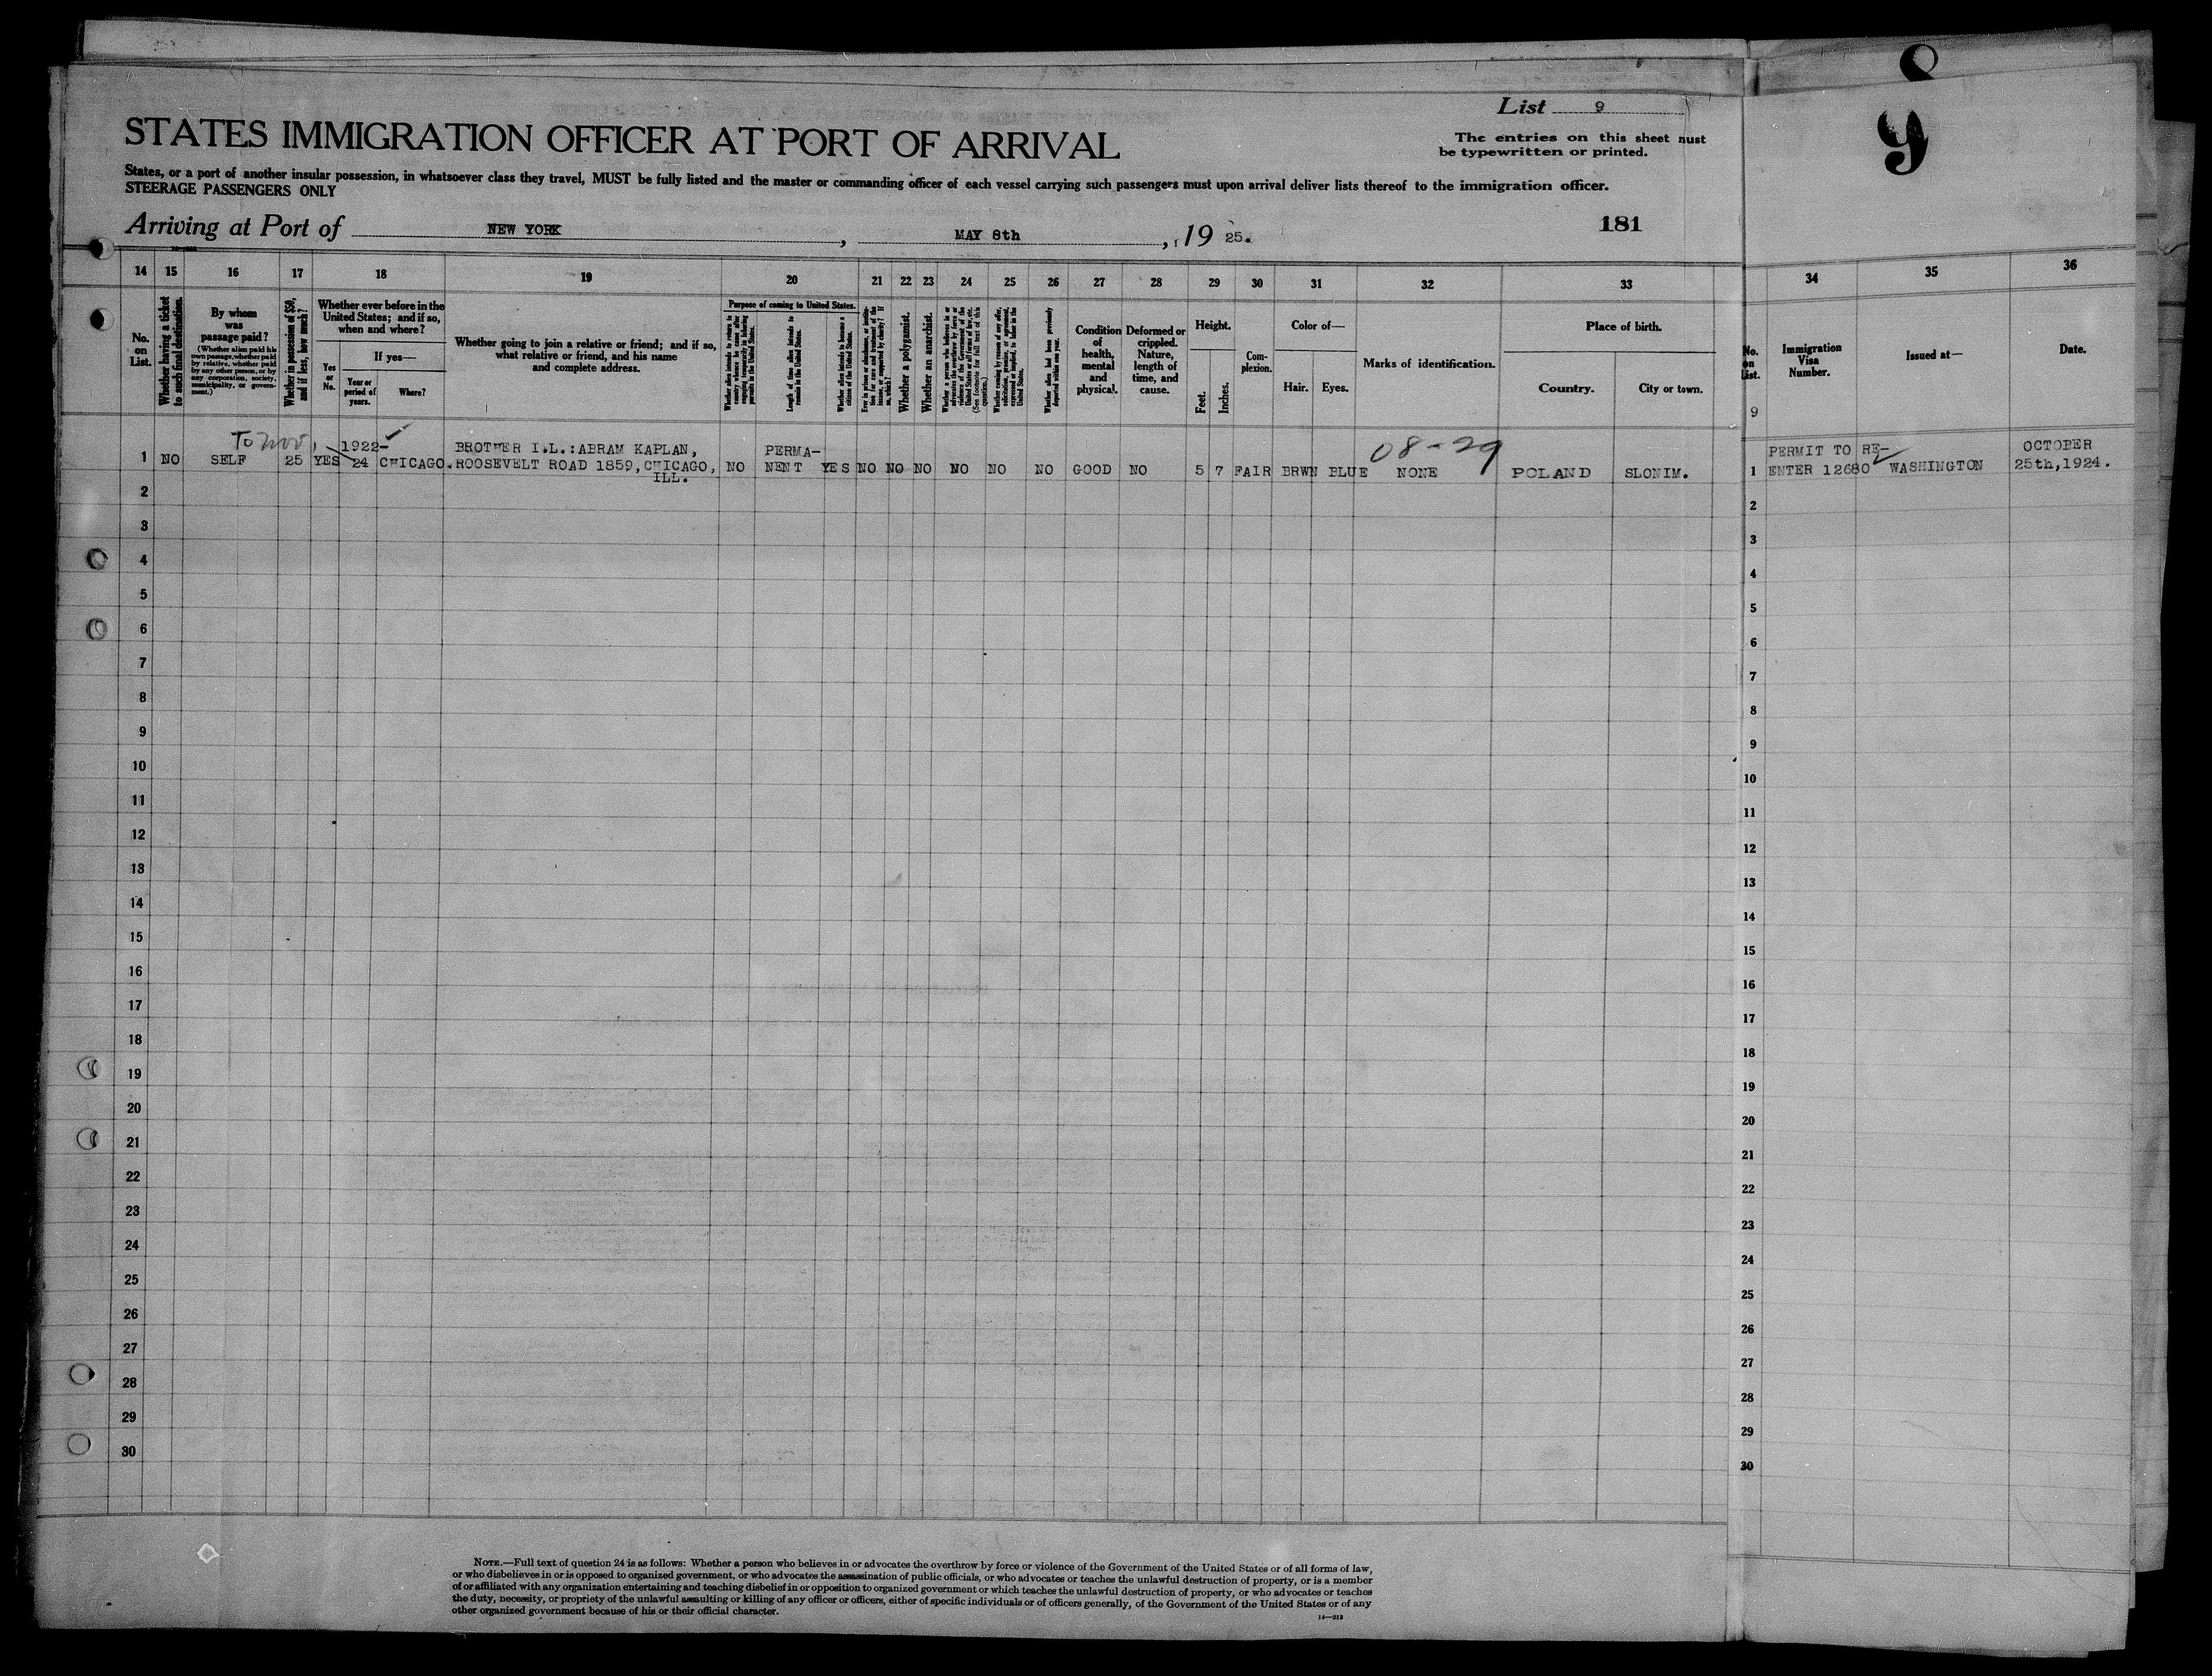 List 9
9
STATES IMMIGRATION OFFICER AT PORT OF ARRIVAL
The entries on this sheet must be typewritten or printed.
States, or a port of another insular possession, in whatsoever class they travel, MUST be fully listed and the master or commanding officer of each vessel carrying such passengers must upon arrival deliver lists thereof to the immigration officer.
STEERAGE PASSENGERS ONLY
Arriving at Port of NEW YORK, MAY 8th, 19 25.
181
14 15 16 17 18 19 20 21 22 23 24 25 26 27 28 29 30 31 32 33 34 35 36
No. on List.
Whether having a ticket to such final destination.
By whom was passage paid?
(Whether alien paid his own passage, whether paid by relative, whether paid by any other person, or by any corporation, society, municipality, or government.)
Whether in possession of $50, and if less, how much?
Whether ever before in the United States; and if so, when and where?
Yes or No.
If yes—
Year or period of years.
Where?
Whether going to join a relative or friend; and if so, what relative or friend, and his name and complete address.
Purpose of coming to United States.
Whether alien intends to return to country whence he came after engaging temporarily in laboring pursuits in the United States.
Length of time alien intends to remain in the United States.
Whether alien intends to become a citizen of the United States.
Ever in prison or almshouse, or institution for care and treatment of the insane, or supported by charity? If so, which?
Whether a polygamist.
Whether an anarchist.
Whether a person who believes in or advocates the overthrow by force or violence of the Government of the United States or all forms of law, etc. (See footnote for full text of this question.)
Whether coming by reason of any offer, solicitation, promise, or agreement, expressed or implied, to labor in the United States.
Whether alien had been previously deported within one year.
Condition of health, mental and physical.
Deformed or crippled. Nature, length of time, and cause.
Height.
Feet.
Inches.
Complexion.
Color of—
Hair. Eyes.
Marks of identification.
Place of birth.
Country. City or town.
No. on List.
9
Immigration Visa Number.
Issued at—
Date.
1 NO SELF 25 YES 1922-24 CHICAGO. BROTHER I.L.:ABRAM KAPLAN,
ROOSEVELT ROAD 1859, CHICAGO,
ILL.
NO PERMA-
NENT YES NO NO NO NO NO NO GOOD NO 5 7 FAIR BRWN BLUE NONE POLAND SLONIM.
08-29
1 PERMIT TO RE-
ENTER 12680 WASHINGTON OCTOBER
25th,1924.
2 2
3 3
4 4
5 5
6 6
7 7
8 8
9 9
10 10
11 11
12 12
13 13
14 14
15 15
16 16
17 17
18 18
19 19
20 20
21 21
22 22
23 23
24 24
25 25
26 26
27 27
28 28
29 29
30 30
NOTE.—Full text of question 24 is as follows: Whether a person who believes in or advocates the overthrow by force or violence of the Government of the United States or of all forms of law,
or who disbelieves in or is opposed to organized government, or who advocates the assassination of public officials, or who advocates or teaches the unlawful destruction of property, or is a member
of or affiliated with any organization entertaining and teaching disbelief in or opposition to organized government or which teaches the unlawful destruction of property, or who advocates or teaches
the duty, necessity, or propriety of the unlawful assaulting or killing of any officer or officers, either of specific individuals or of officers generally, of the Government of the United States or of any
other organized government because of his or their official character.
14—213